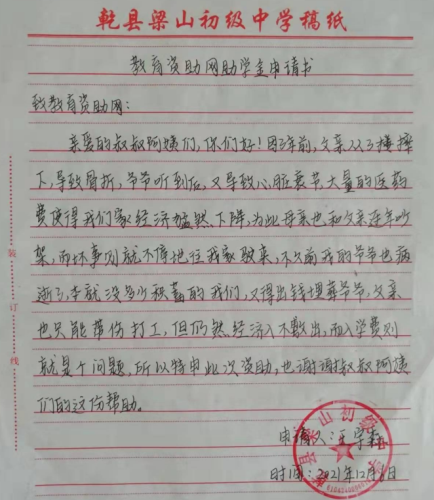 乾县梁山初级中学稿纸
教育资助网助学金申请书
致教育资助网：
亲爱的叔叔阿姨们，你们好！因3年前，父亲从3楼摔
下，导致骨折，爷爷听到后，又导致心脏衰节，大量的医药
费使得我们家经济猛然下降，为此母亲也和父亲连年吵
架，而坏事则就不停地往我家驶来，不久前我的爷爷也病
逝了，本就没多少积蓄的我们，又得出钱埋葬爷爷，父亲
也只能带伤打工，但仍然经济入不敷出，而入学费则
就是个问题，所以特申此次资助，也谢谢谢叔叔阿姨
们的这份帮助。
申请人：王学
时间：2021年12月6日
装订线